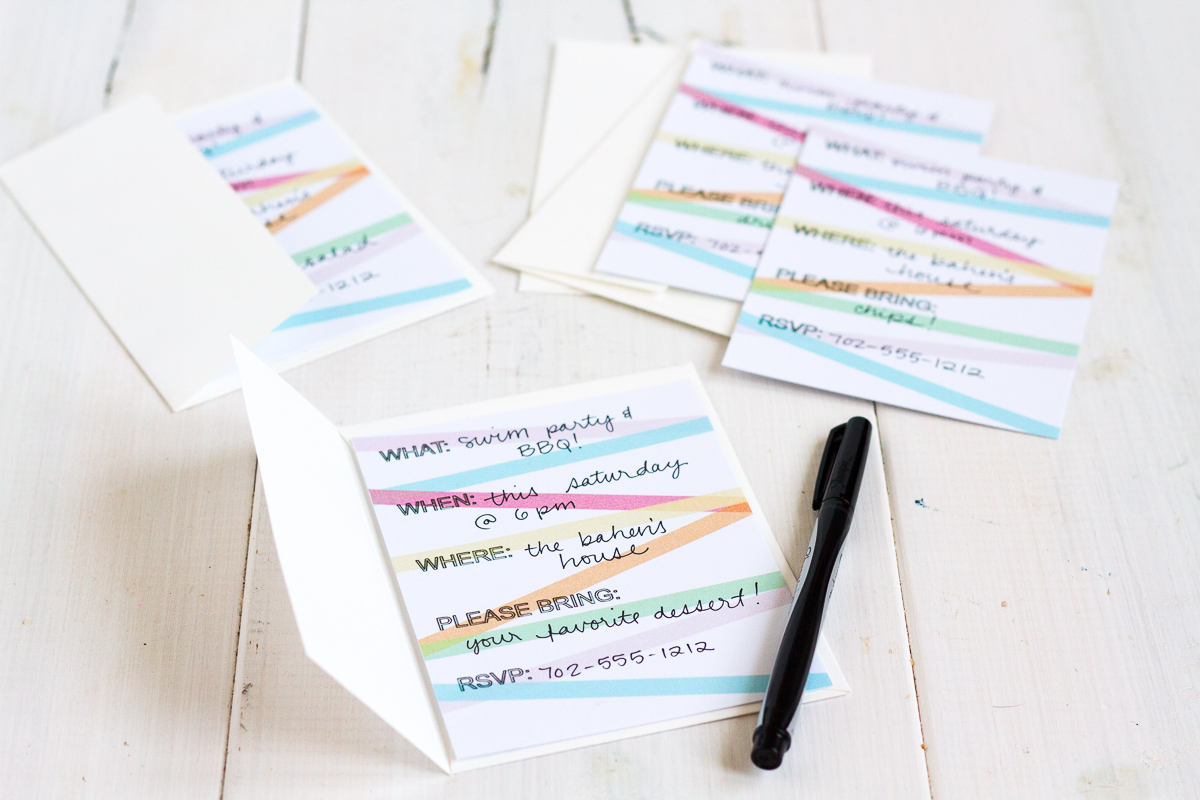 WHAT: swim party &
BBQ!
WHEN: this saturday
@ 6 pm
WHERE: the bahen's
house
PLEASE BRING:
your favorite dessert!
RSVP: 702-555-1212
WHAT: swim party &
BBQ!
WHEN: this saturday
@ 6 pm
WHERE: the bahen's
house
PLEASE BRING:
chips!
RSVP: 702-555-1212
WHAT: swim party &
BBQ!
WHEN:
WHERE: the
PLEASE BRING:
RSVP: 702-
party &
saturday
bahen's
salad
-1212